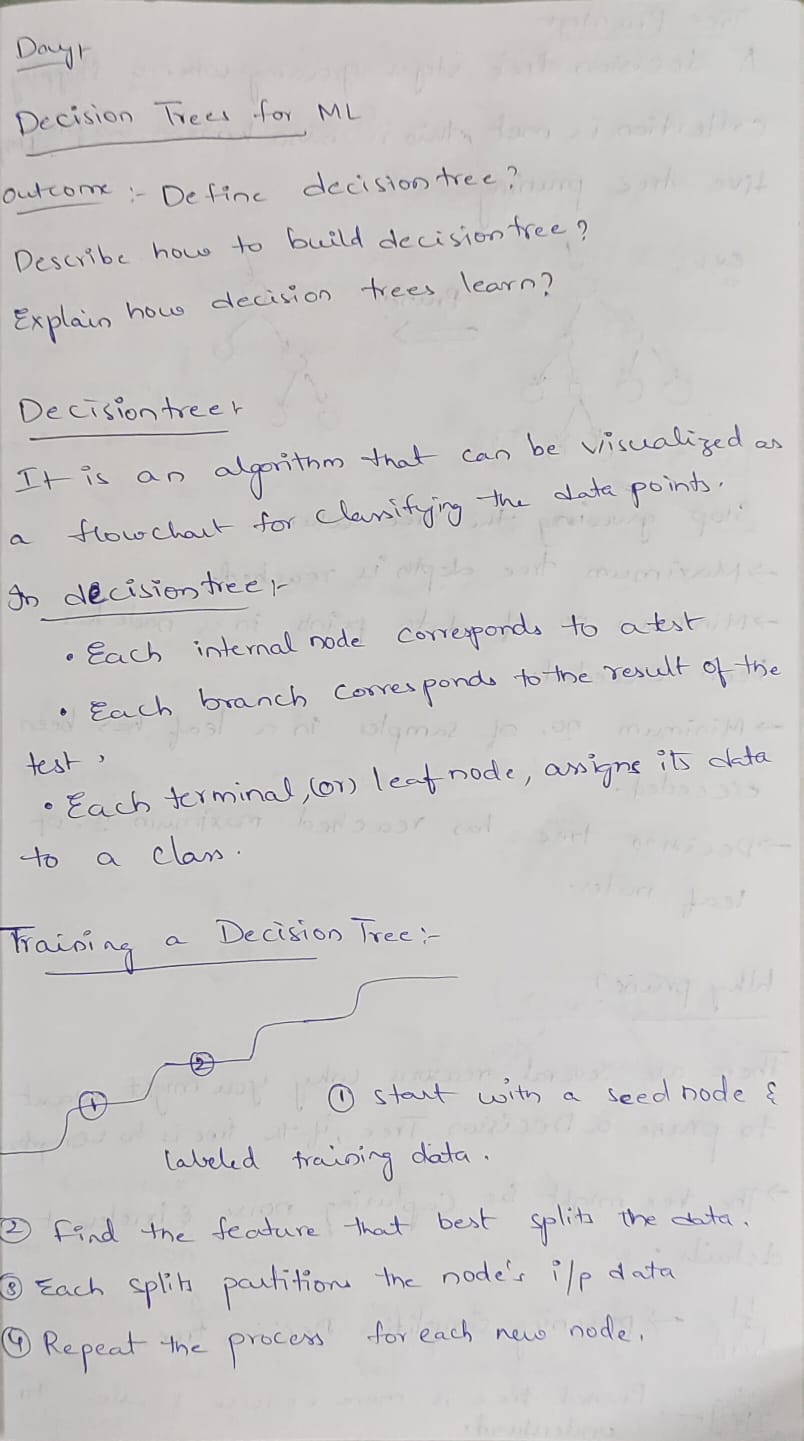 Day:-
Decision Trees for ML
outcome :- Define decision tree?
Describe how to build decision tree?
Explain how decision trees learn?
Decision tree:-
It is an algorithm that can be visualized as
a flowchart for classifying the data points.
In decision tree:-
• Each internal node corresponds to a test
• Each branch corresponds to the result of the
test,
• Each terminal, (or) leaf node, assigns its data
to a class.
Training a Decision Tree:-
① ②
① start with a seed node &
labeled training data.
② Find the feature that best splits the data.
③ Each split partitions the node's i/p data
④ Repeat the process for each new node.